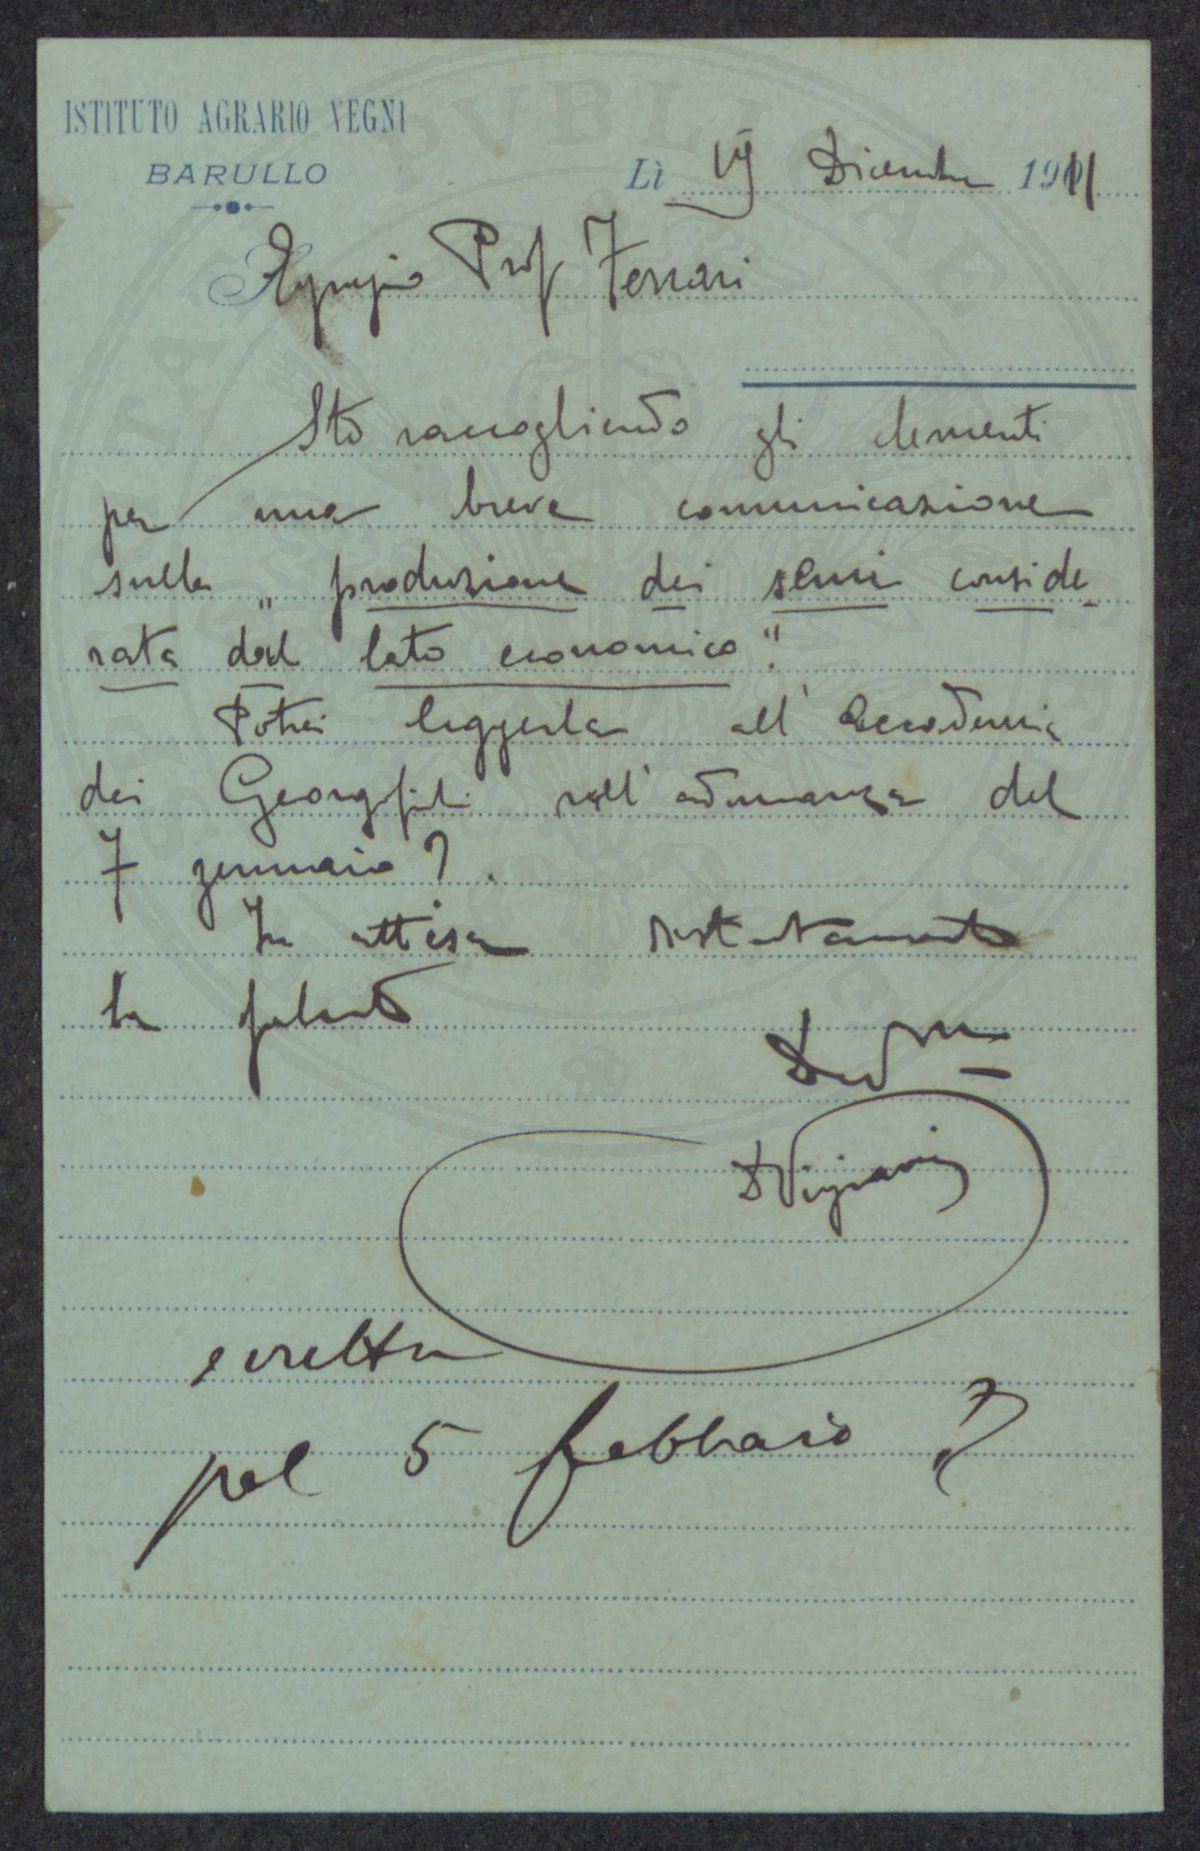 ISTITUTO AGRARIO VEGNI
BARULLO
Lì Dicembre 1911
Egregio Prof Ferrari
Sto raccogliendo gli elementi
per una breve comunicazione
sulla "produzione dei semi conside-
rata dal lato economico".
Potrei leggerla all'Accademia
dei Georgofili nell'adunanza del
7 gennaio?
In attesa
la saluto
Dev mo
scritto
pel 5 febbraio?